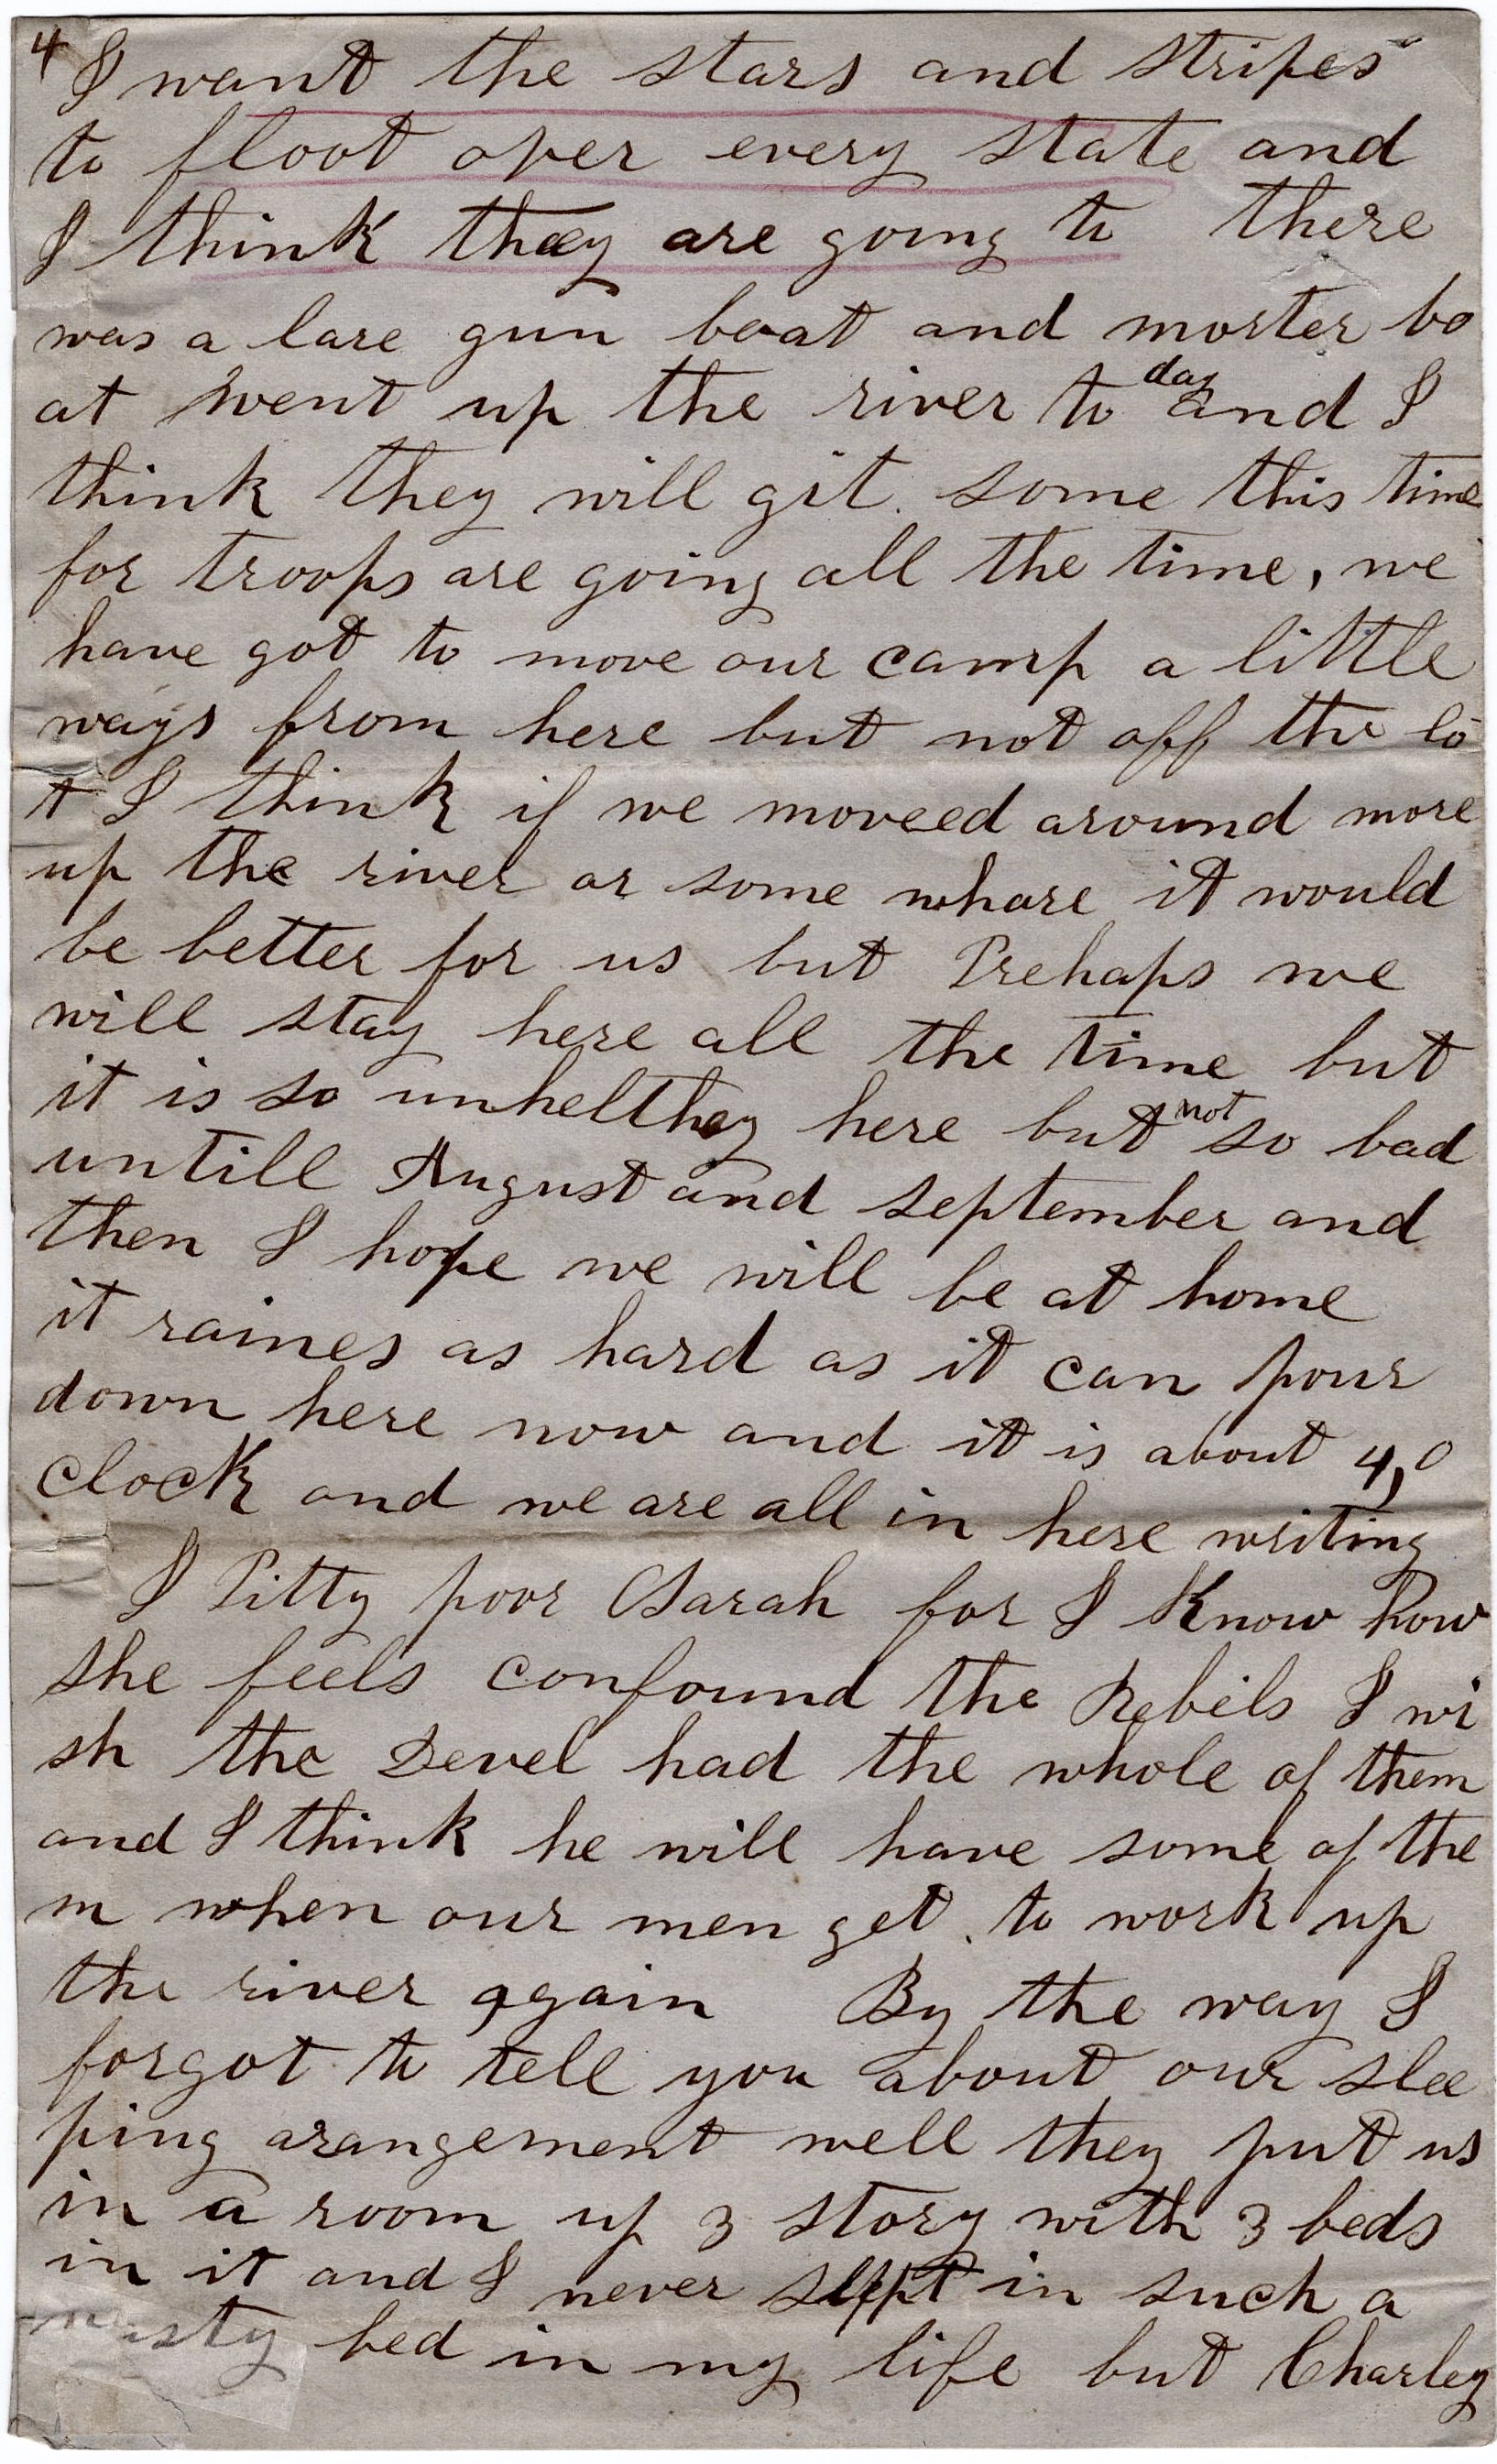 4 I want the stars and stripes
to floot over every state and
I think thaey are going to there
was a lare gun boat and morter bo
at went up the river to day and I
think they will git some this time
for troops are going all the time, we
have got to move our camp a little
ways from here but not off the lo
t I think if we moveed around more
up the river or some whare it would
be better for us but Prehaps we
will stay here all the time but
it is so unhelthey here but not so bad
untill August and september and
then I hope we will be at home
it raines as hard as it can pour
down here now and it is about 4,0
clock and we are all in here writing
I Pitty poor Sarah for I Know how
she feels confound the Rebels I wi
sh the Devel had the whole of them
and I think he will have some of the
m when our men get to work up
the river again By the way I
forgot to tell you about our slee
ping arangement well they put us
in a room up 3 story with 3 beds
in it and I never slept in such a
nasty bed in my life but Charley